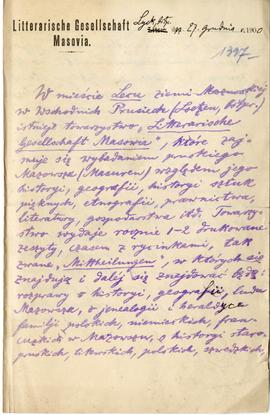 Litterarische Gesellschaft
Masovia.
Lyck, 27. Grudnia 1900
1397
W mieście Lecu ziemi Mazowieckiej
w Wschodnich Prusiech (Loetzen, Ostpr.)
istnieje towarzystwo, „Litterarische
Gesellschaft Masovia“, które zaj-
muje się wybadaniem pruskiego
Mazowsza (Masuren) względem jego
historyi, geografii, historyi sztuk
pięknych, etnografii, prawnictwa,
literatury, gospodarstwa itd. Towarzy-
stwo wydaje rocznie 1-2 drukowane
zeszyty, czasem z rycinkami, tak
zwane „Mittheilungen“, w których się
znajdują i dalej się znajdować będą
rozprawy o historyi, geografii, ludu
Mazowsza, o jenealogii i heraldyce
familii polskich, niemieskich, fran-
cuzkich w Mazowszu, o historyi staro-
pruskich, litewskich, polskich, szwedzkich,